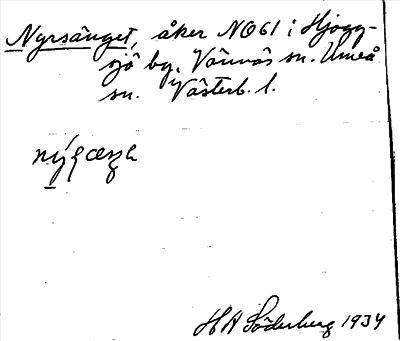 Nyrsänget, åker NO61 i Hjogg-
sjö by. Vännäs sn. Umeå
sn. Västerb. l.
H A Söderberg 1934